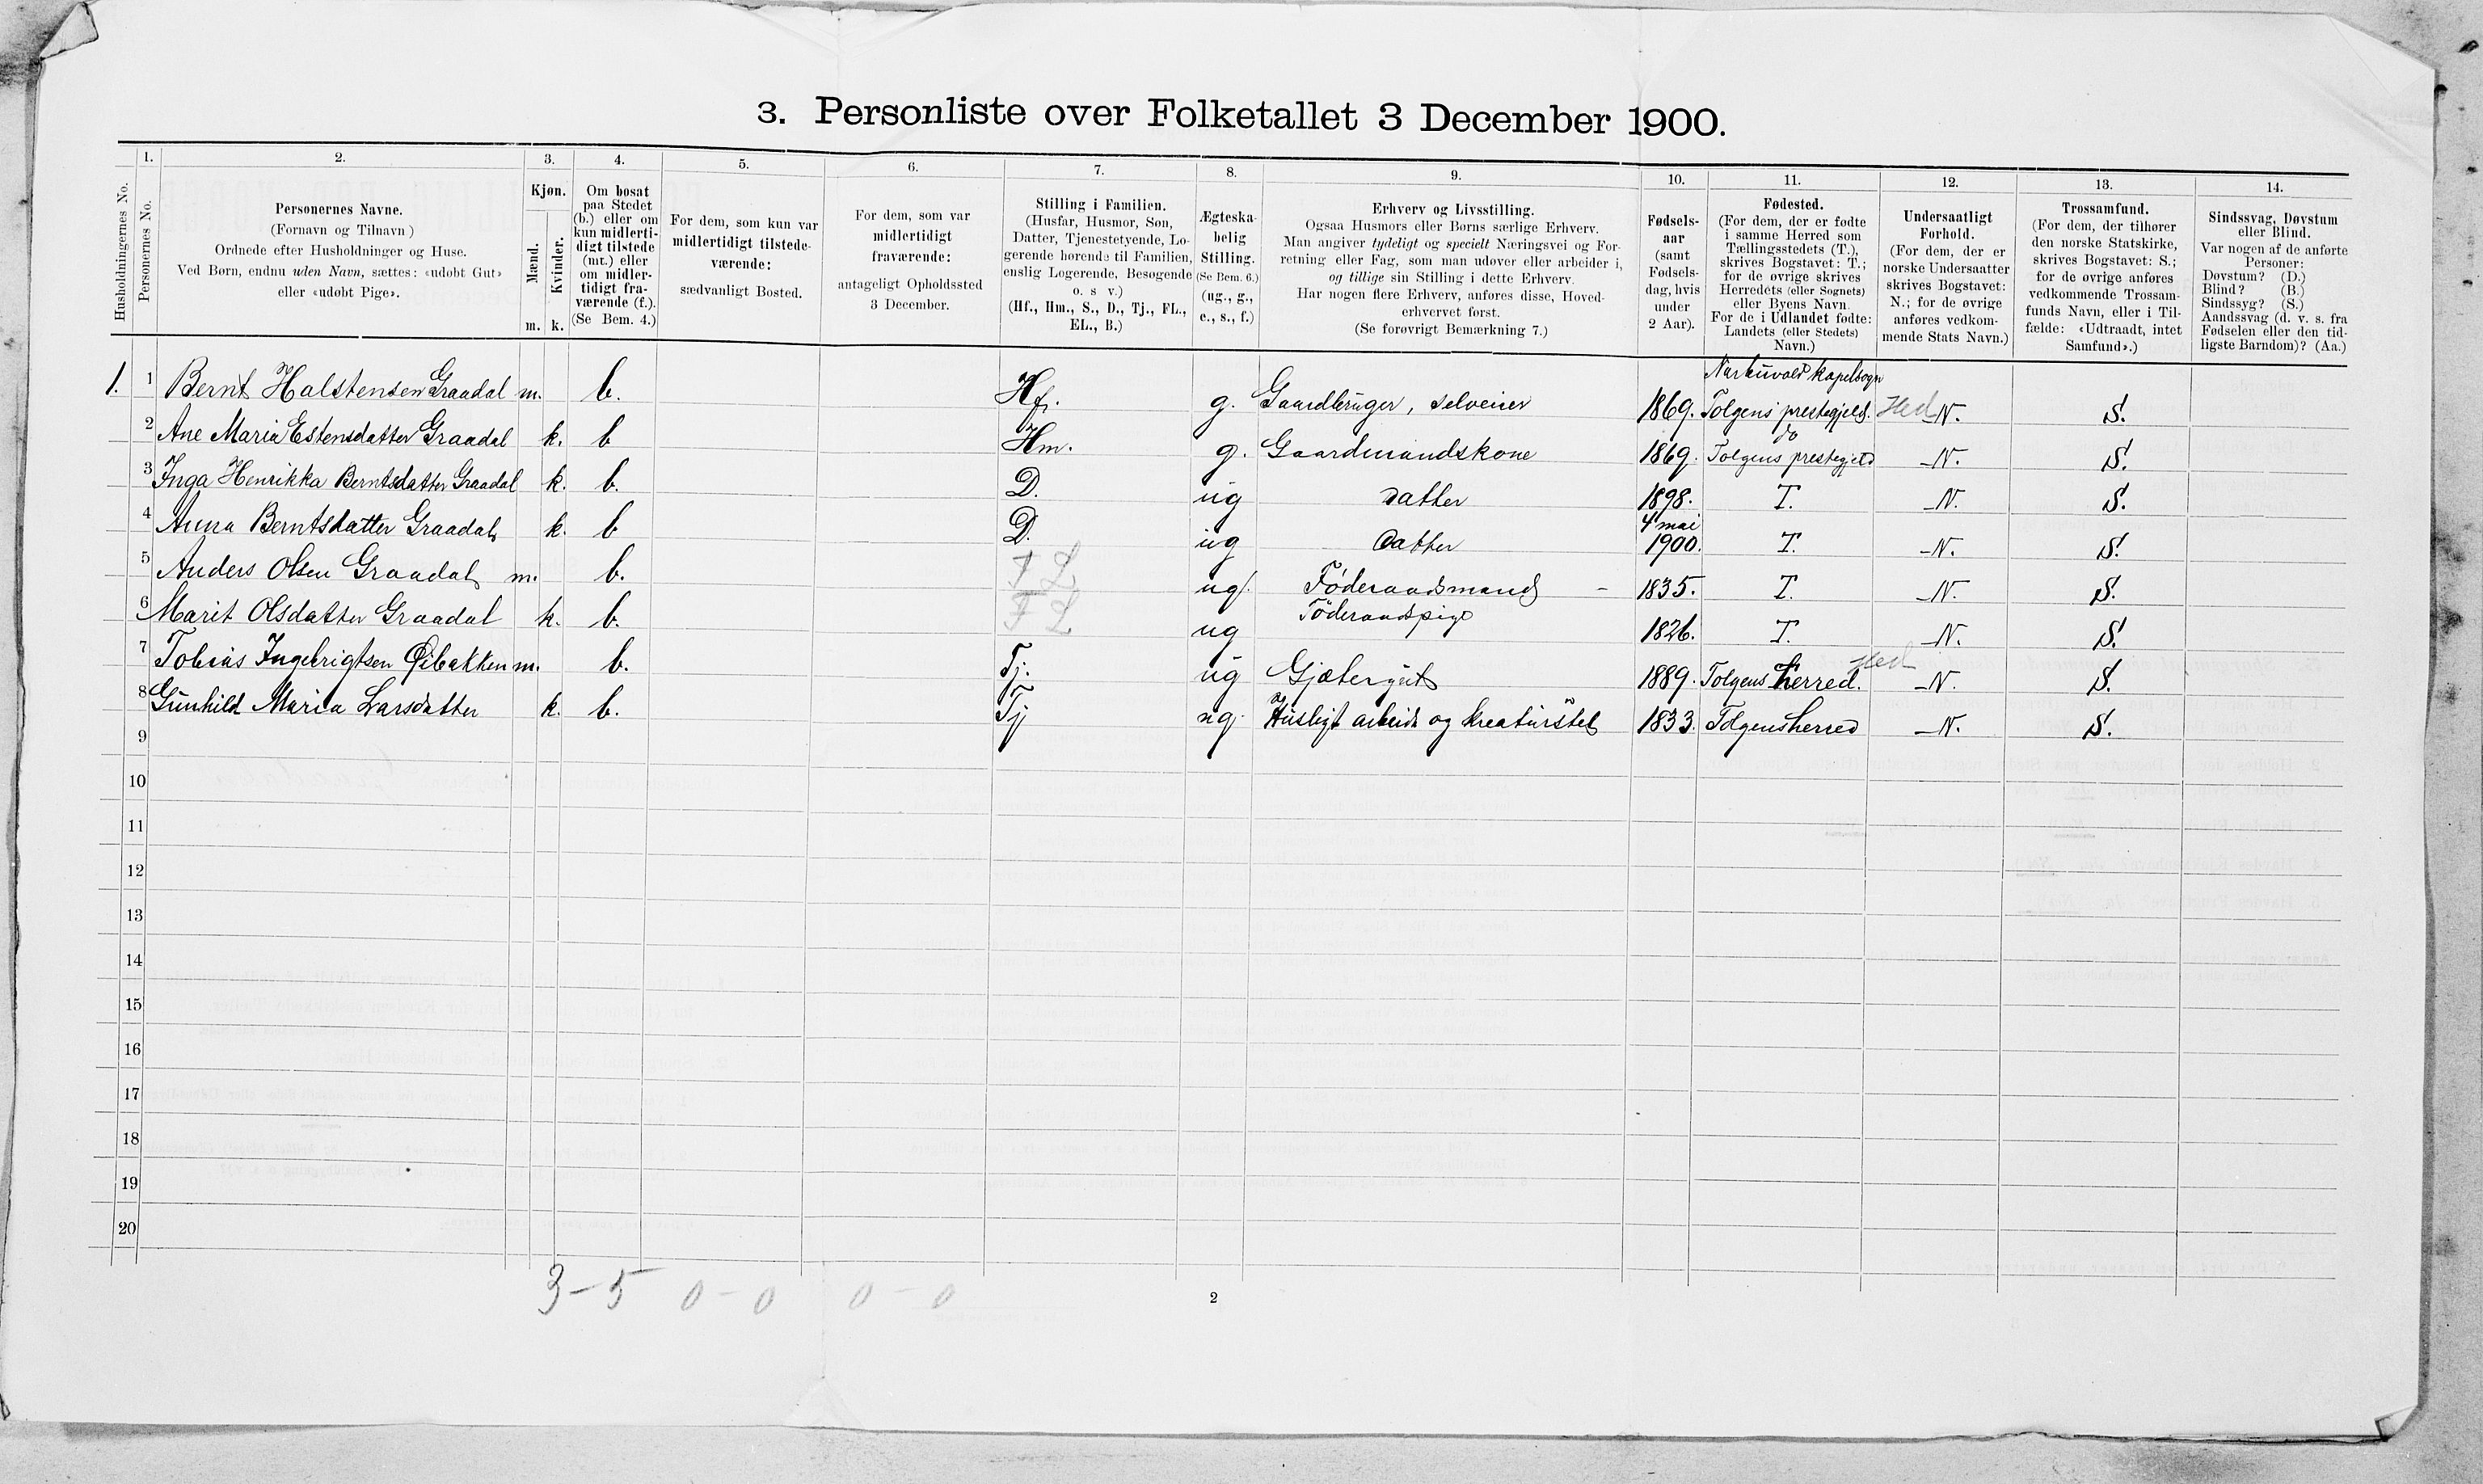 3. Personliste over Folketallet 3 December 1900.
1. 2. 3. 4. 5. 6. 7. 8. 9. 10. 11. 12. 13. 14.
Husholdningernes No.
Personernes No.
Personernes Navne.
(Fornavn og Tilnavn )
Ordnede efter Husholdninger og Huse.
Ved Børn, endnu uden Navn, sættes: «udøbt Gut»
eller «udøbt Pige».
Kjøn.
Mænd.
Kvinder.
m. k.
Om bosat
paa Stedet
(b.) eller om
kun midlerti-
digt tilstede
(mt.) eller
om midler-
tidigt fra-
værende (f.).
(Se Bem. 4.)
For dem, som kun var
midlertidigt tilstede-
værende:
sædvanligt Bosted.
For dem, som var
midlertidigt
fraværende:
antageligt Opholdssted
3 December.
Stilling i Familien.
(Husfar, Husmor, Søn,
Datter, Tjenestetyende, Lo-
gerende hørende til Familien,
enslig Logerende, Besøgende
o. s v.)
(Hf., Hm., S., D., Tj., FL.,
EL., B.)
Ægteska-
belig
Stilling.
(Se Bem. 6.)
(ug., g.,
e., s., f.)
Erhverv og Livsstilling.
Ogsaa Husmors eller Børns særlige Erhverv.
Man angiver tydeligt og specielt Næringsvei og For-
retning eller Fag, som man udøver eller arbeider i,
og tillige sin Stilling i dette Erhverv.
Har nogen flere Erhverv, anføres disse, Hoved-
erhvervet først.
(Se forøvrigt Bemærkning 7.)
Fødsels-
aar
(samt
Fødsels-
dag, hvis
under
2 Aar).
Fødested.
(For dem, der er fødte
i samme Herred som
Tællingsstedets (T.),
skrives Bogstavet: T.;
for de øvrige skrives
Herredets (eller Sognets)
eller Byens Navn.
For de i Udlandet fødte:
Landets (eller Stedets)
Navn.)
Undersaatligt
Forhold.
(For dem, der er
norske Undersaatter
skrives Bogstavet:
N.; for de øvrige
anføres vedkom-
mende Stats Navn.)
Trossamfund.
(For dem, der tilhører
den norske Statskirke,
skrives Bogstavet: S.;
for de øvrige anføres
vedkommende Trossam-
funds Navn, eller i Til-
fælde: «Udtraadt, intet
Samfund».)
Sindssvag, Døvstum
eller Blind.
Var nogen af de anførte
Personer:
Døvstum? (D.)
Blind? (B.)
Sindssyg? (S.)
Aandssvag (d. v. s. fra
Fødselen eller den tid-
ligste Barndom)? (Aa.)
kapelsogn
1. 1 Bernt Halstensen Graadal m. b. Hf. g. Gaardbruger, selveier 1869. Tolgens prestegjeld. Hed N. S.
do
2 Ane Maria Estensdatter Graadal k. b Hm. g. Gaardmandskone 1869. Tolgens prestegjeld N. S.
3 Inga Henrikka Berntsdatter Graadal k. b. D. ug datter 1898. T. N. S.
4 mai
4 Anna Berntsdatter Graadal k. b D. ug Datter 1900. T. N. S.
5 Anders Olsen Graadal m. b. F L ug. Føderaadsmand - 1835. T. N. S.
6 Marit Olsdatter Graadal k. b. F L ug Føderaadspige 1826. T. N. S.
Hed
7 Tobias Ingebrigtsen Øibakken m. b. Tj. ug Gjætergut 1889. Tolgens herred. N. S.
8 Gunhild Maria Larsdatter k. b. Tj ug. Husligt arbeide og kreaturstel 1833. Tolgens herred N. S.
9
10
11
12
13
14
15
16
17
18
19
20
3 - 5 0 - 0 0 - 0
2